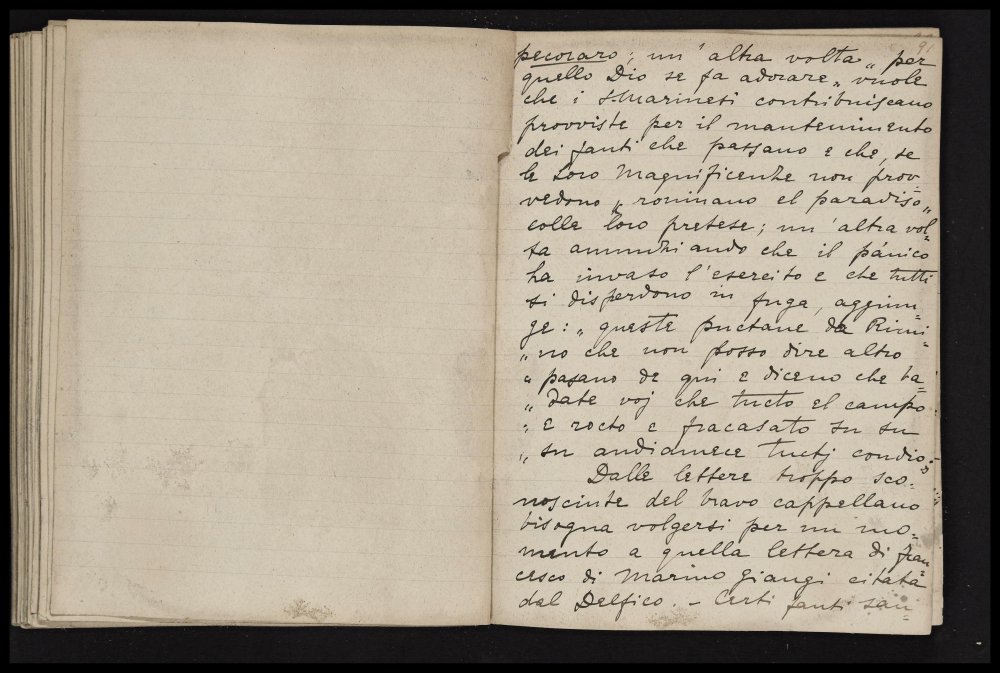 91
pecoraro; un'altra volta „ per
quello Dio se fa adorare „ vuole
che i S.Marinesi contribuiscano
provviste per il mantenimento
dei fanti che passano e che, se
le Loro Magnificenze non prov=
vedono „ rominano el paradiso „
colle loro pretese; un'altra vol=
ta annunziando che il pánico
ha invaso l'esercito e che tutti
si disperdono in fuga, aggiun=
ge: „ queste puctane da Rimi=
„ no che non posso dire altro
„ pasano de qui e diceno che ba=
„ date voj che tucto el campo
„ e rocto e fracasato su su
„ su andiamece tuctj condio „
Dalle lettere troppo sco=
nosciute del bravo cappellano
bisogna volgersi per un mo=
mento a quella lettera di Fran=
cesco di Marino Giangi citata
dal Delfico. – Certi fanti san=